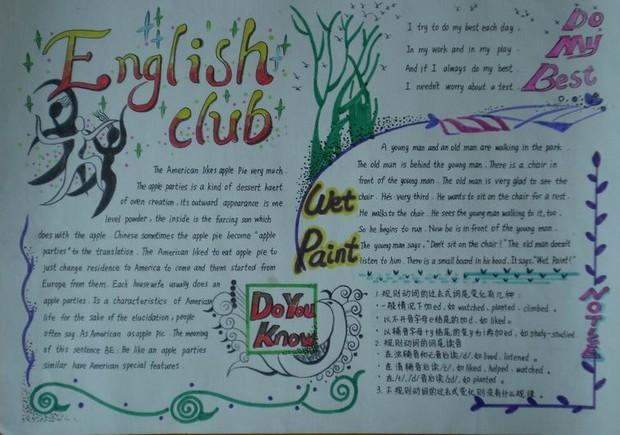 English
club
The American likes apple Pie very much.
The apple parties is a kind of dessert haert
of oven creation. its outward appearance is one
level powder, the inside is the farcing son which
does with the apple. Chinese sometimes the apple pie become "apple
parties" to the translation. The American liked to eat apple pie to
just change residence to America to come and them started from
Europe from them. Each housewife usually does an
apple parties. Is a characteristics of American
life for the sake of the elucidation, people
often say. As American as apple pie. The meaning
of this sentence BE: Be like an apple parties
similar have American special features
Do You
Know
I try to do my best each day.
In my work and in my play.
And if I always do my best.
I needn't worry about a test.
Do
My
Best
Wet
Paint
A young man and an old man are walking in the park.
The old man is behind the young man. There is a chair in
front of the young man. The old man is very glad to see the
chair. He's very third. He wants to sit on the chair for a rest.
He walks to the chair. He sees the young man walking to it, too.
So he begins to run. Now he is in front of the young man.
The young man says, "Don't sit on the chair!" The old man doesn't
listen to him. There is a small board in his head. It says, "Wet Paint!"
1. 规则动词的过去式词尾变化有几种:
一般情况下加ed, 如 watched, planted, climbed。
以不开音字母e结尾的加d, 如 liked。
以辅音字母+y结尾的变y为i再加ed, 如 study-studied
2. 规则动词的词尾读音
在浊辅音和元音后读/d/, 如 lived, listened。
在清辅音后读/t/, 如 liked, helped, watched。
在/t/,/d/音后读/id/, 如 planted。
3. 不规则动词的过去式变化则没有什么规律。